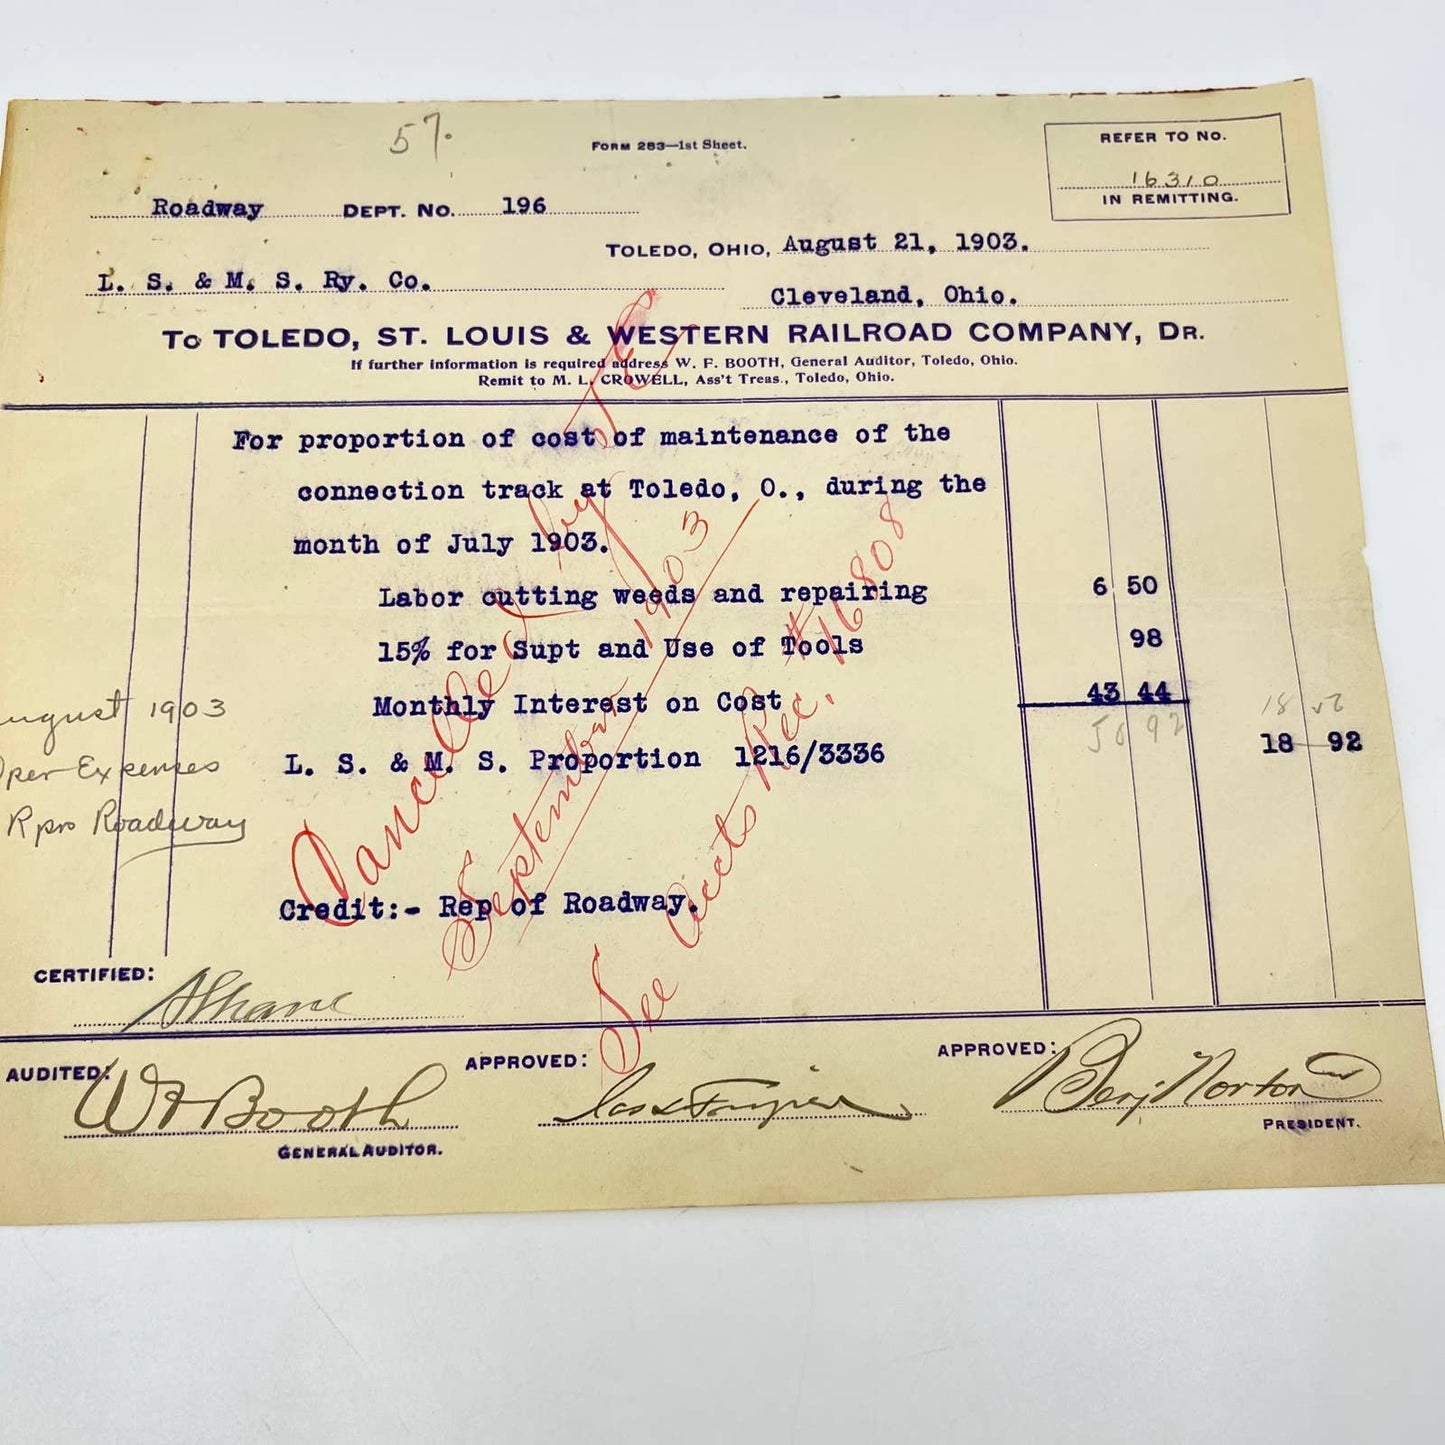 57.
FORM 283—1st Sheet.
REFER TO NO.
16310
IN REMITTING.
Roadway DEPT. NO. 196
TOLEDO, OHIO, August 21, 1903.
L. S. & M. S. Ry. Co.
Cleveland, Ohio.
TO TOLEDO, ST. LOUIS & WESTERN RAILROAD COMPANY, DR.
If further information is required address W. F. BOOTH, General Auditor, Toledo, Ohio.
Remit to M. L. CROWELL, Ass't Treas., Toledo, Ohio.
For proportion of cost of maintenance of the
connection track at Toledo, O., during the
month of July 1903.
Labor cutting weeds and repairing 6 50
15% for Supt and Use of Tools 98
Monthly Interest on Cost 43 44
50 92
18
L. S. & M. S. Proportion 1216/3336 18 92
August 1903
Oper Expenses
Rprs Roadway
Cancelled by
September 1903
See Accts Rec. #16808
Credit:- Rep of Roadway.
CERTIFIED:
AUDITED: W F Booth
GENERAL AUDITOR.
APPROVED:
APPROVED: Benj Norton
PRESIDENT.